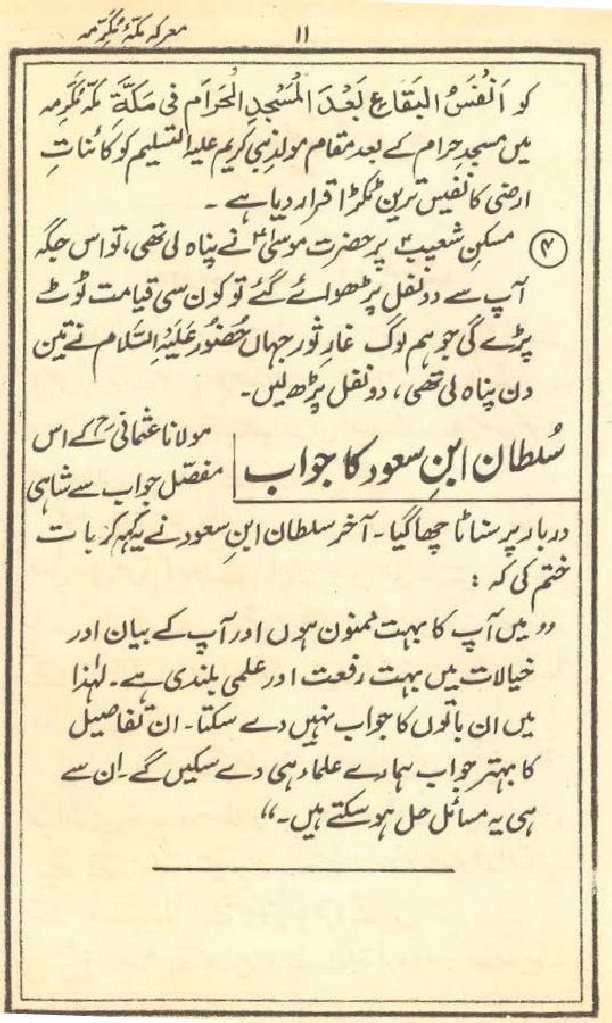 معرکہ مکّۂ مکرّمہ
۱۱
کو اَنْفَسُ البَقَاعِ بَعْدَ الْمَسْجِدِ الْحَرَام فی مَکَّۃَ مکّۂ مکرّمہ
میں مسجدِ حرام کے بعد مقام مولدِ نبی کریم علیہ التسلیم کو کائناتِ
ارضی کا نفیس ترین ٹکڑا قرار دیا ہے ۔
۴ مسکنِ شعیبؑ پر حضرت موسیٰؑ نے پناہ لی تھی، تو اس جگہ
آپ سے دو نفل پڑھوائے گئے تو کون سی قیامت ٹوٹ
پڑے گی جو ہم لوگ غارِ ثور جہاں حُضُور عَلَیْہِ السَّلام نے تین
دن پناہ لی تھی، دو نفل پڑھ لیں۔
سُلطان ابنِ سعود کا جواب
مولانا عثمانیؒ کے اس
مفصّل جواب سے شاہی
دربار پر سناٹا چھا گیا ۔ آخر سلطان ابنِ سعود نے یہ کہہ کر بات
ختم کی کہ :
”میں آپ کا بہت ممنون ہوں اور آپ کے بیان اور
خیالات میں بہت رفعت اور علمی بلندی ہے ۔ لہٰذا
میں ان باتوں کا جواب نہیں دے سکتا۔ ان تفاصیل
کا بہتر جواب ہمارے علماء ہی دے سکیں گے۔ ان سے
ہی یہ مسائل حل ہو سکتے ہیں۔“